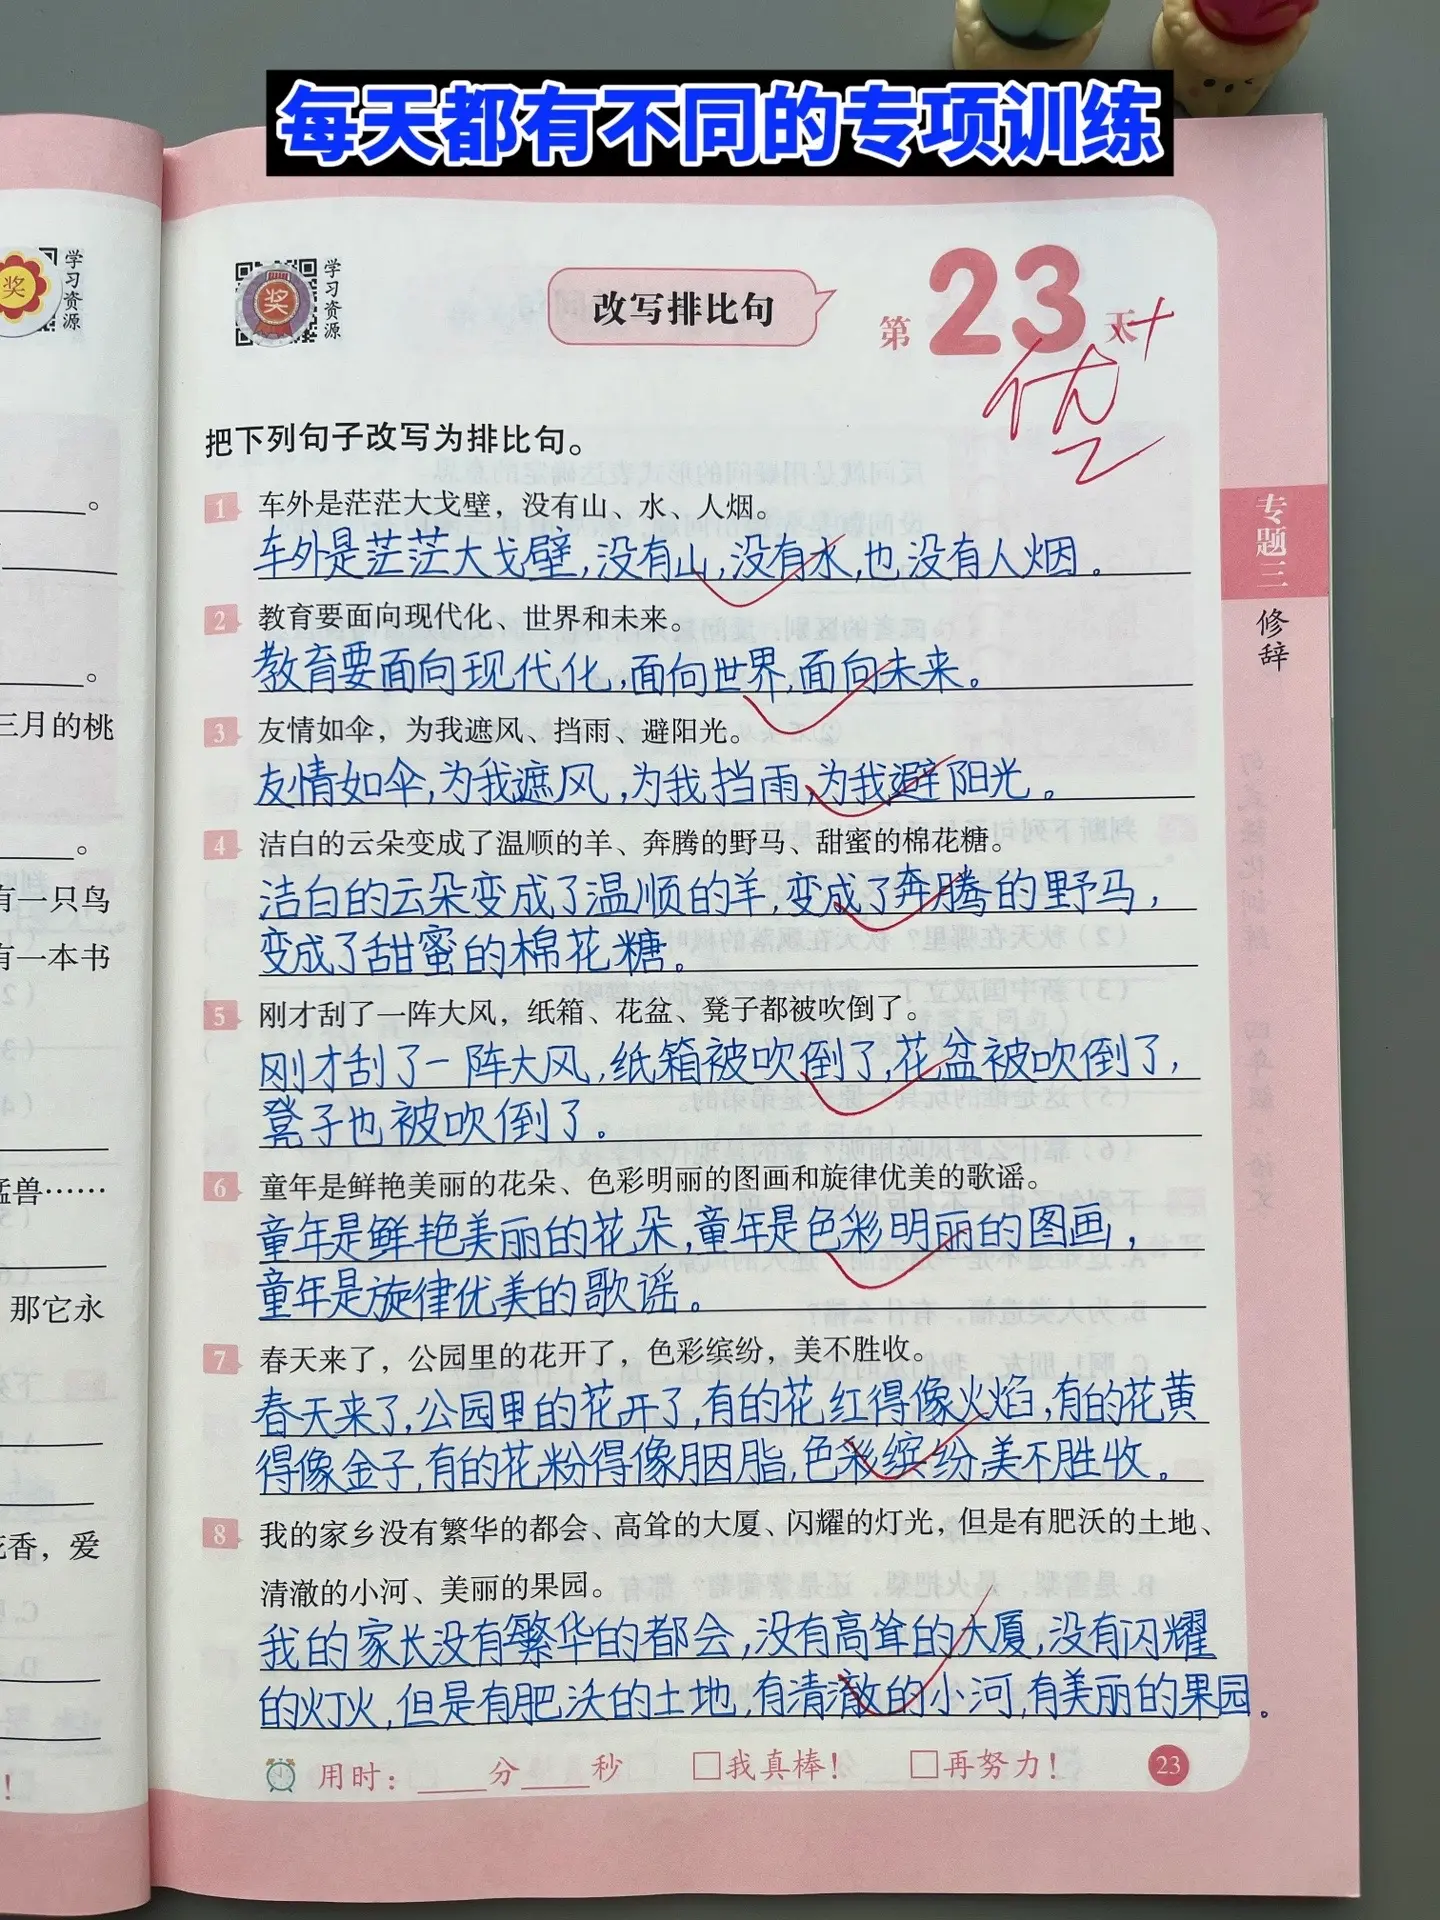 每天都有不同的专项训练
奖
学习资源
三月的桃
有一只鸟
有一本书
猛兽……
那它永
花香，爱
！
奖
学习资源
改写排比句
第23天
优+
把下列句子改写为排比句。
1 车外是茫茫大戈壁，没有山、水、人烟。
车外是茫茫大戈壁,没有山,没有水,也没有人烟。
2 教育要面向现代化、世界和未来。
教育要面向现代化,面向世界,面向未来。
3 友情如伞，为我遮风、挡雨、避阳光。
友情如伞,为我遮风,为我挡雨,为我避阳光。
4 洁白的云朵变成了温顺的羊、奔腾的野马、甜蜜的棉花糖。
洁白的云朵变成了温顺的羊,变成了奔腾的野马,
变成了甜蜜的棉花糖。
5 刚才刮了一阵大风，纸箱、花盆、凳子都被吹倒了。
刚才刮了一阵大风,纸箱被吹倒了,花盆被吹倒了,
凳子也被吹倒了。
6 童年是鲜艳美丽的花朵、色彩明丽的图画和旋律优美的歌谣。
童年是鲜艳美丽的花朵,童年是色彩明丽的图画,
童年是旋律优美的歌谣。
7 春天来了，公园里的花开了，色彩缤纷，美不胜收。
春天来了,公园里的花开了,有的花红得像火焰,有的花黄
得像金子,有的花粉得像胭脂,色彩缤纷,美不胜收。
8 我的家乡没有繁华的都会、高耸的大厦、闪耀的灯光，但是有肥沃的土地、
清澈的小河、美丽的果园。
我的家长没有繁华的都会,没有高耸的大厦,没有闪耀
的灯火,但是有肥沃的土地,有清澈的小河,有美丽的果园。
用时：____分____秒 □我真棒！ □再努力！
23
专题三
修辞